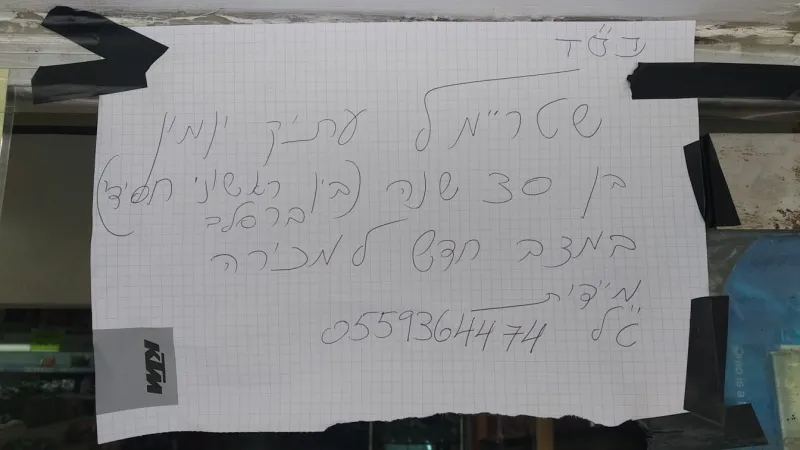 בס"ד
שטריימל עתיק יומין
בן 30 שנה (בין ראשוני חסידי
ברסלב)
במצב חדש למכירה
מיידית
אצל 0559364474
KTM